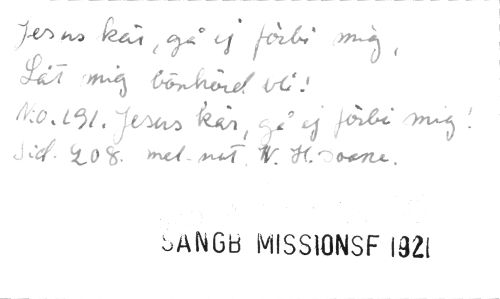 Jesus kär, gå ej förbi mig,
Låt mig bönhörd bli!
No. 191. Jesus kär, gå ej förbi mig!
Sid. 208. mel. not. W. H. Doane.
SANGB MISSIONSF 1921